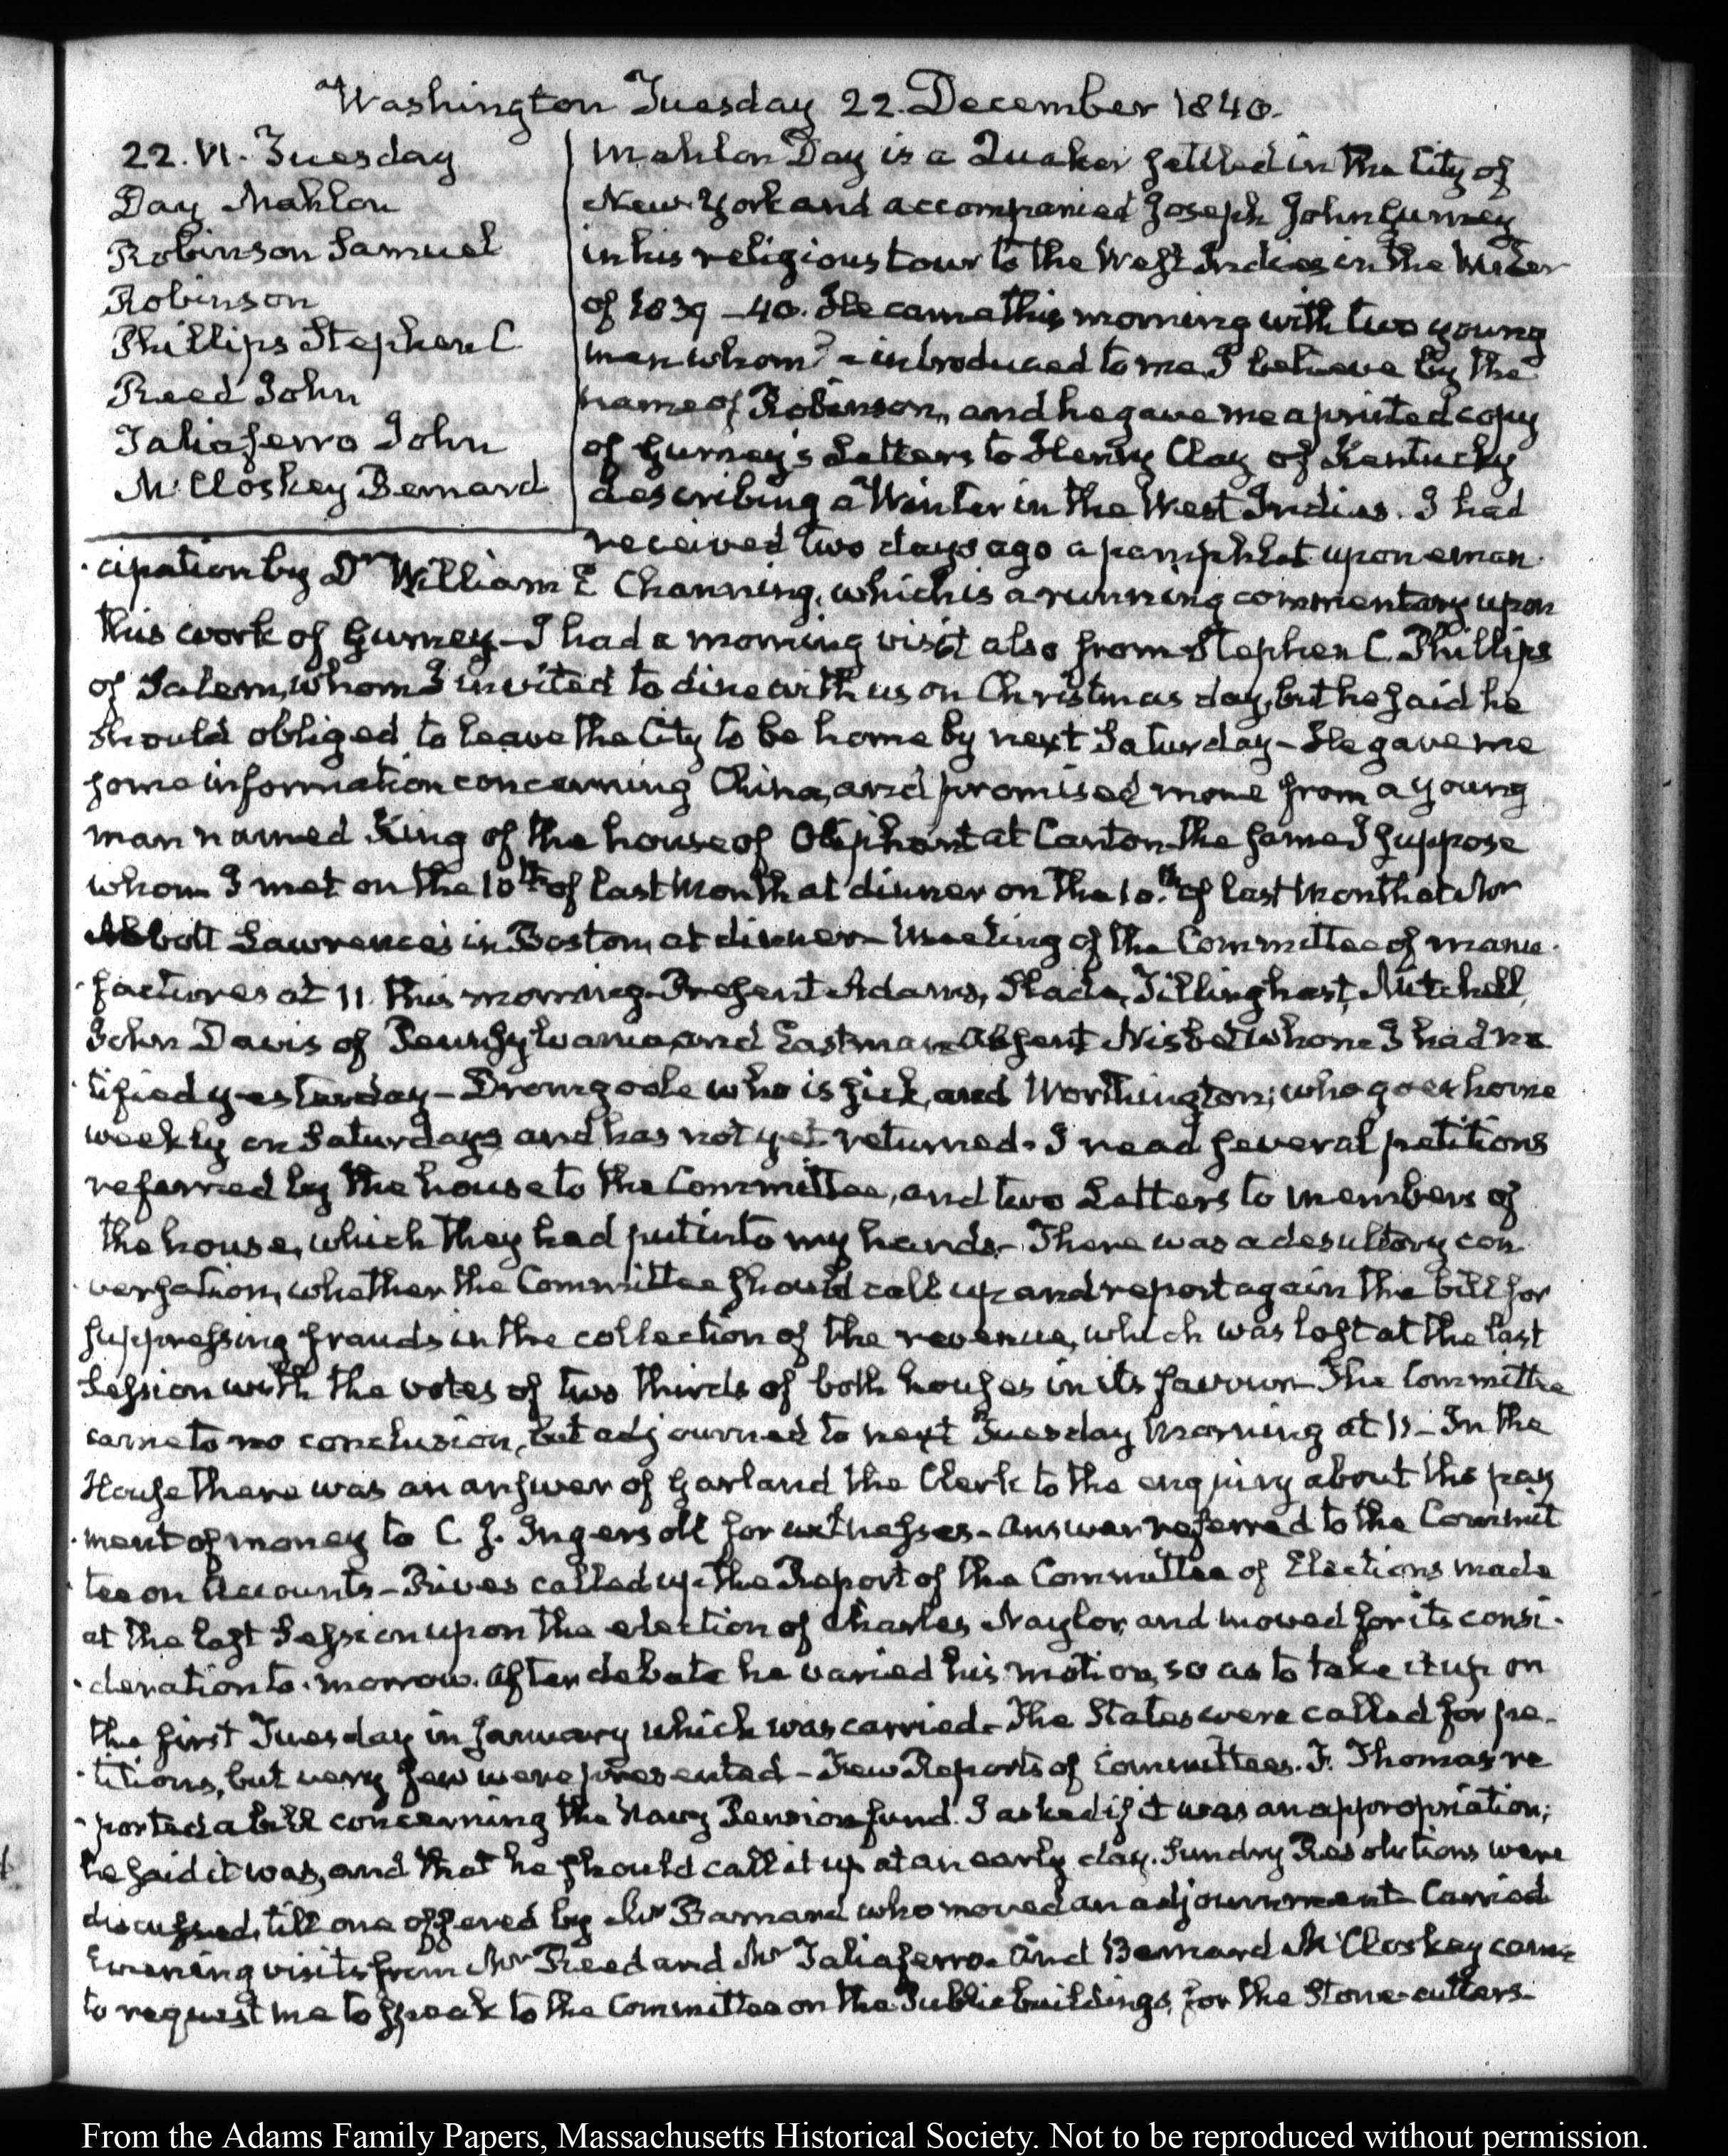 Washington Tuesday 22. December 1840.
22. VI. Tuesday
Day Mahlon
Robinson Samuel
Robinson
Phillips Stephen C
Reed John
Taliaferro John
McCloskey Bernard
Mahlon Day is a Quaker settled in the City of
New-York and accompanied Joseph John Gurney
in his religious tour to the West Indies in the Winter
of 1839 - 40. He came this morning with two young
men whom he introduced to me I believe by the
name of Robinson, and he gave me a printed copy
of Gurney's Letters to Henry Clay of Kentucky
describing a Winter in the West Indies. I had
received two days ago a pamphlet upon eman
cipation by Dr William E Channing, which is a running commentary upon
this work of Gurney - I had a morning visit also from Stephen C. Phillips
of Salem, whom I invited to dine with us on Christmas day, but he said he
should obliged to leave the City to be home by next Saturday - He gave me
some information concerning China, and promised more from a young
man named King of the house of Olyphant at Canton the same I suppose
whom I met on the 10th of last Month at dinner on the 10th of last Month at Mr
Abbott Lawrence's in Boston, at dinner - Meeting of the Committee of manu
factures at 11. this morning - Present Adams, Slade, Tillinghast, Mitchell,
John Davis of Pennsylvania, and Eastman. Absent Nisbet whom I had no
tified yesterday - Dromgoole who is sick, and Worthington; who goes home
weekly on Saturdays and has not yet returned. I read several petitions
referred by the house to the Committee, and two Letters to members of
the house, which they had put into my hands - There was a desultory con
versation, whether the Committee should call up and report again the bill for
suppressing frauds in the collection of the revenue, which was lost at the last
Session with the votes of two thirds of both houses in its favour - The Committee
came to no conclusion, but adjourned to next Tuesday Morning at 11 - In the
House there was an answer of Garland the Clerk to the enquiry about the pay
ment of money to C. J. Ingersoll for witnesses - Answer referred to the Commit
tee on Accounts - Rives called up the Report of the Committee of Elections made
at the last Session upon the election of Charles Naylor, and moved for its consi
deration to-morrow. After debate he varied his motion, so as to take it up on
the first Tuesday in January which was carried - The States were called for pe
titions, but very few were presented - Few Reports of Committees. F. Thomas re
ported a bill concerning the Navy Pension fund. I asked if it was an appropriation;
he said it was, and that he should call it up at an early day. Sundry Resolutions were
discussed, till one offered by Mr Barnard who moved an adjournment - Carried
Evening visits from Mr Reed and Mr Taliaferro. And Bernard McCloskey came
to request me to speak to the Committee on the Public buildings, for the Stone-cutters -
From the Adams Family Papers, Massachusetts Historical Society. Not to be reproduced without permission.